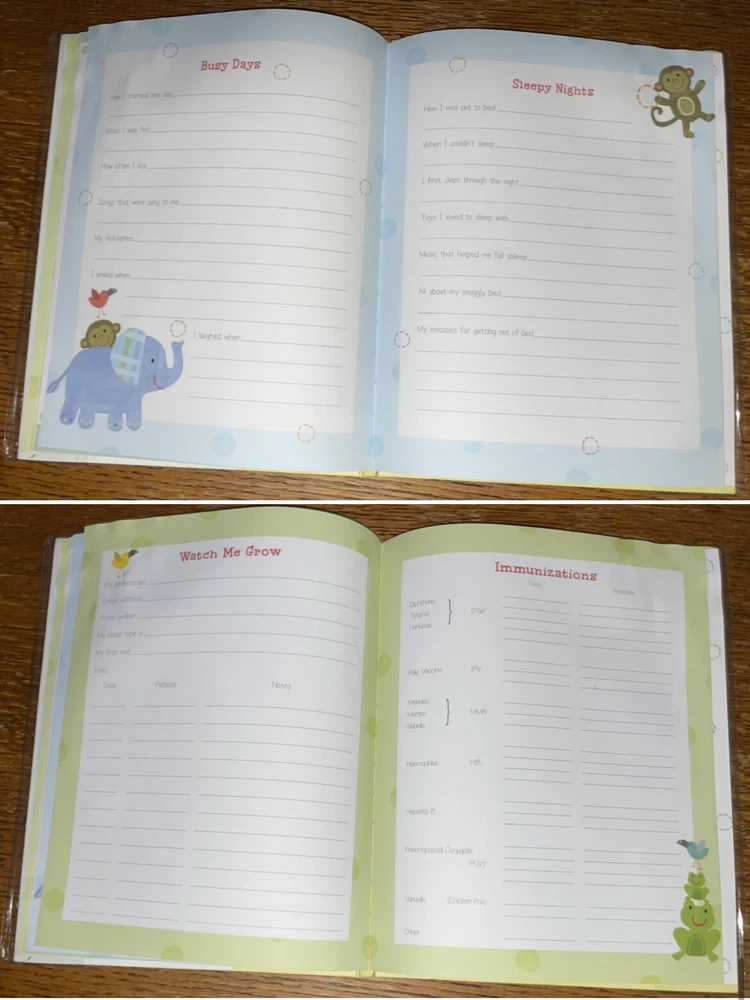 Busy Days
How I started the day
What I was fed
How often I ate
Songs that were sung to me
My nicknames
I smiled when
I laughed when
Sleepy Nights
How I was put to bed
When I couldn't sleep
I first slept through the night
Toys I loved to sleep with
Music that helped me fall asleep
All about my snuggly bed
My excuses for getting out of bed
Watch Me Grow
My pediatrician
Office address
Phone number
My blood type is
My first visit
Visits
Date Purpose Notes
Immunizations
Date Reaction
Diphtheria
Tetanus } DTaP
Pertussis
Polio Vaccine IPV
Measles
Mumps } MMR
Rubella
Haemophilus HIB
Hepatitis B
Pneumococcal Conjugate
PCV7
Varicella (Chicken Pox)
Other